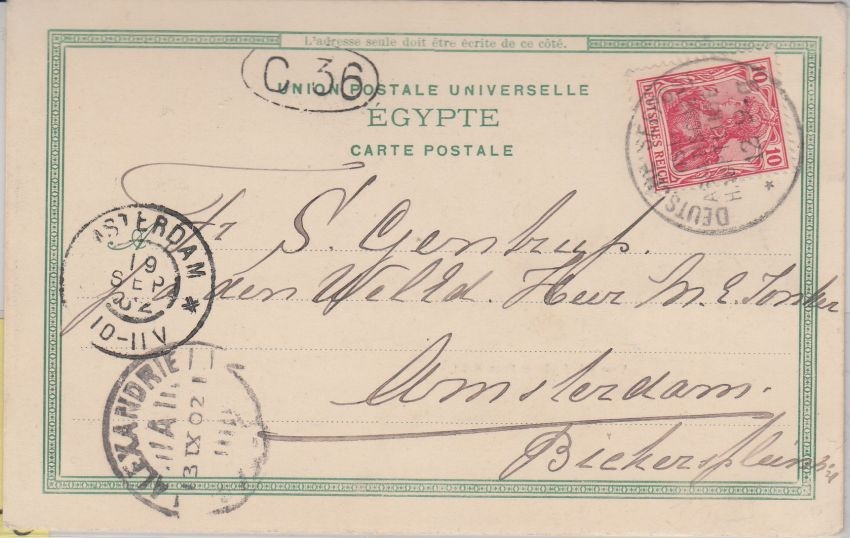 L'adresse seule doit être écrite de ce côté.
C 36
UNION POSTALE UNIVERSELLE
ÉGYPTE
CARTE POSTALE
10
DEUTSCHES REICH
10
DEUTSCHE SEEPOST
S. Gentrup.
p/a den Weled. Heer M. E. Jonker
Amsterdam.
Bickersplein
AMSTERDAM
19
SEP
02
10-11 V
ALEXANDRIE
13 IX 02